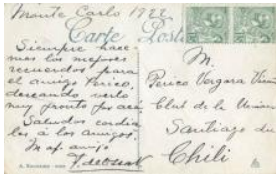 Monte Carlo 1922
Carte Postale
Siempre hace
mos los mejores
recuerdos para
el amigo Perico,
deseando verlo
muy pronto por acá
Saludos cordia
les á los amigos.
Su af. amigo
M.
Perico Vergara Vicuña
Club de la Union
Santiago de
Chili